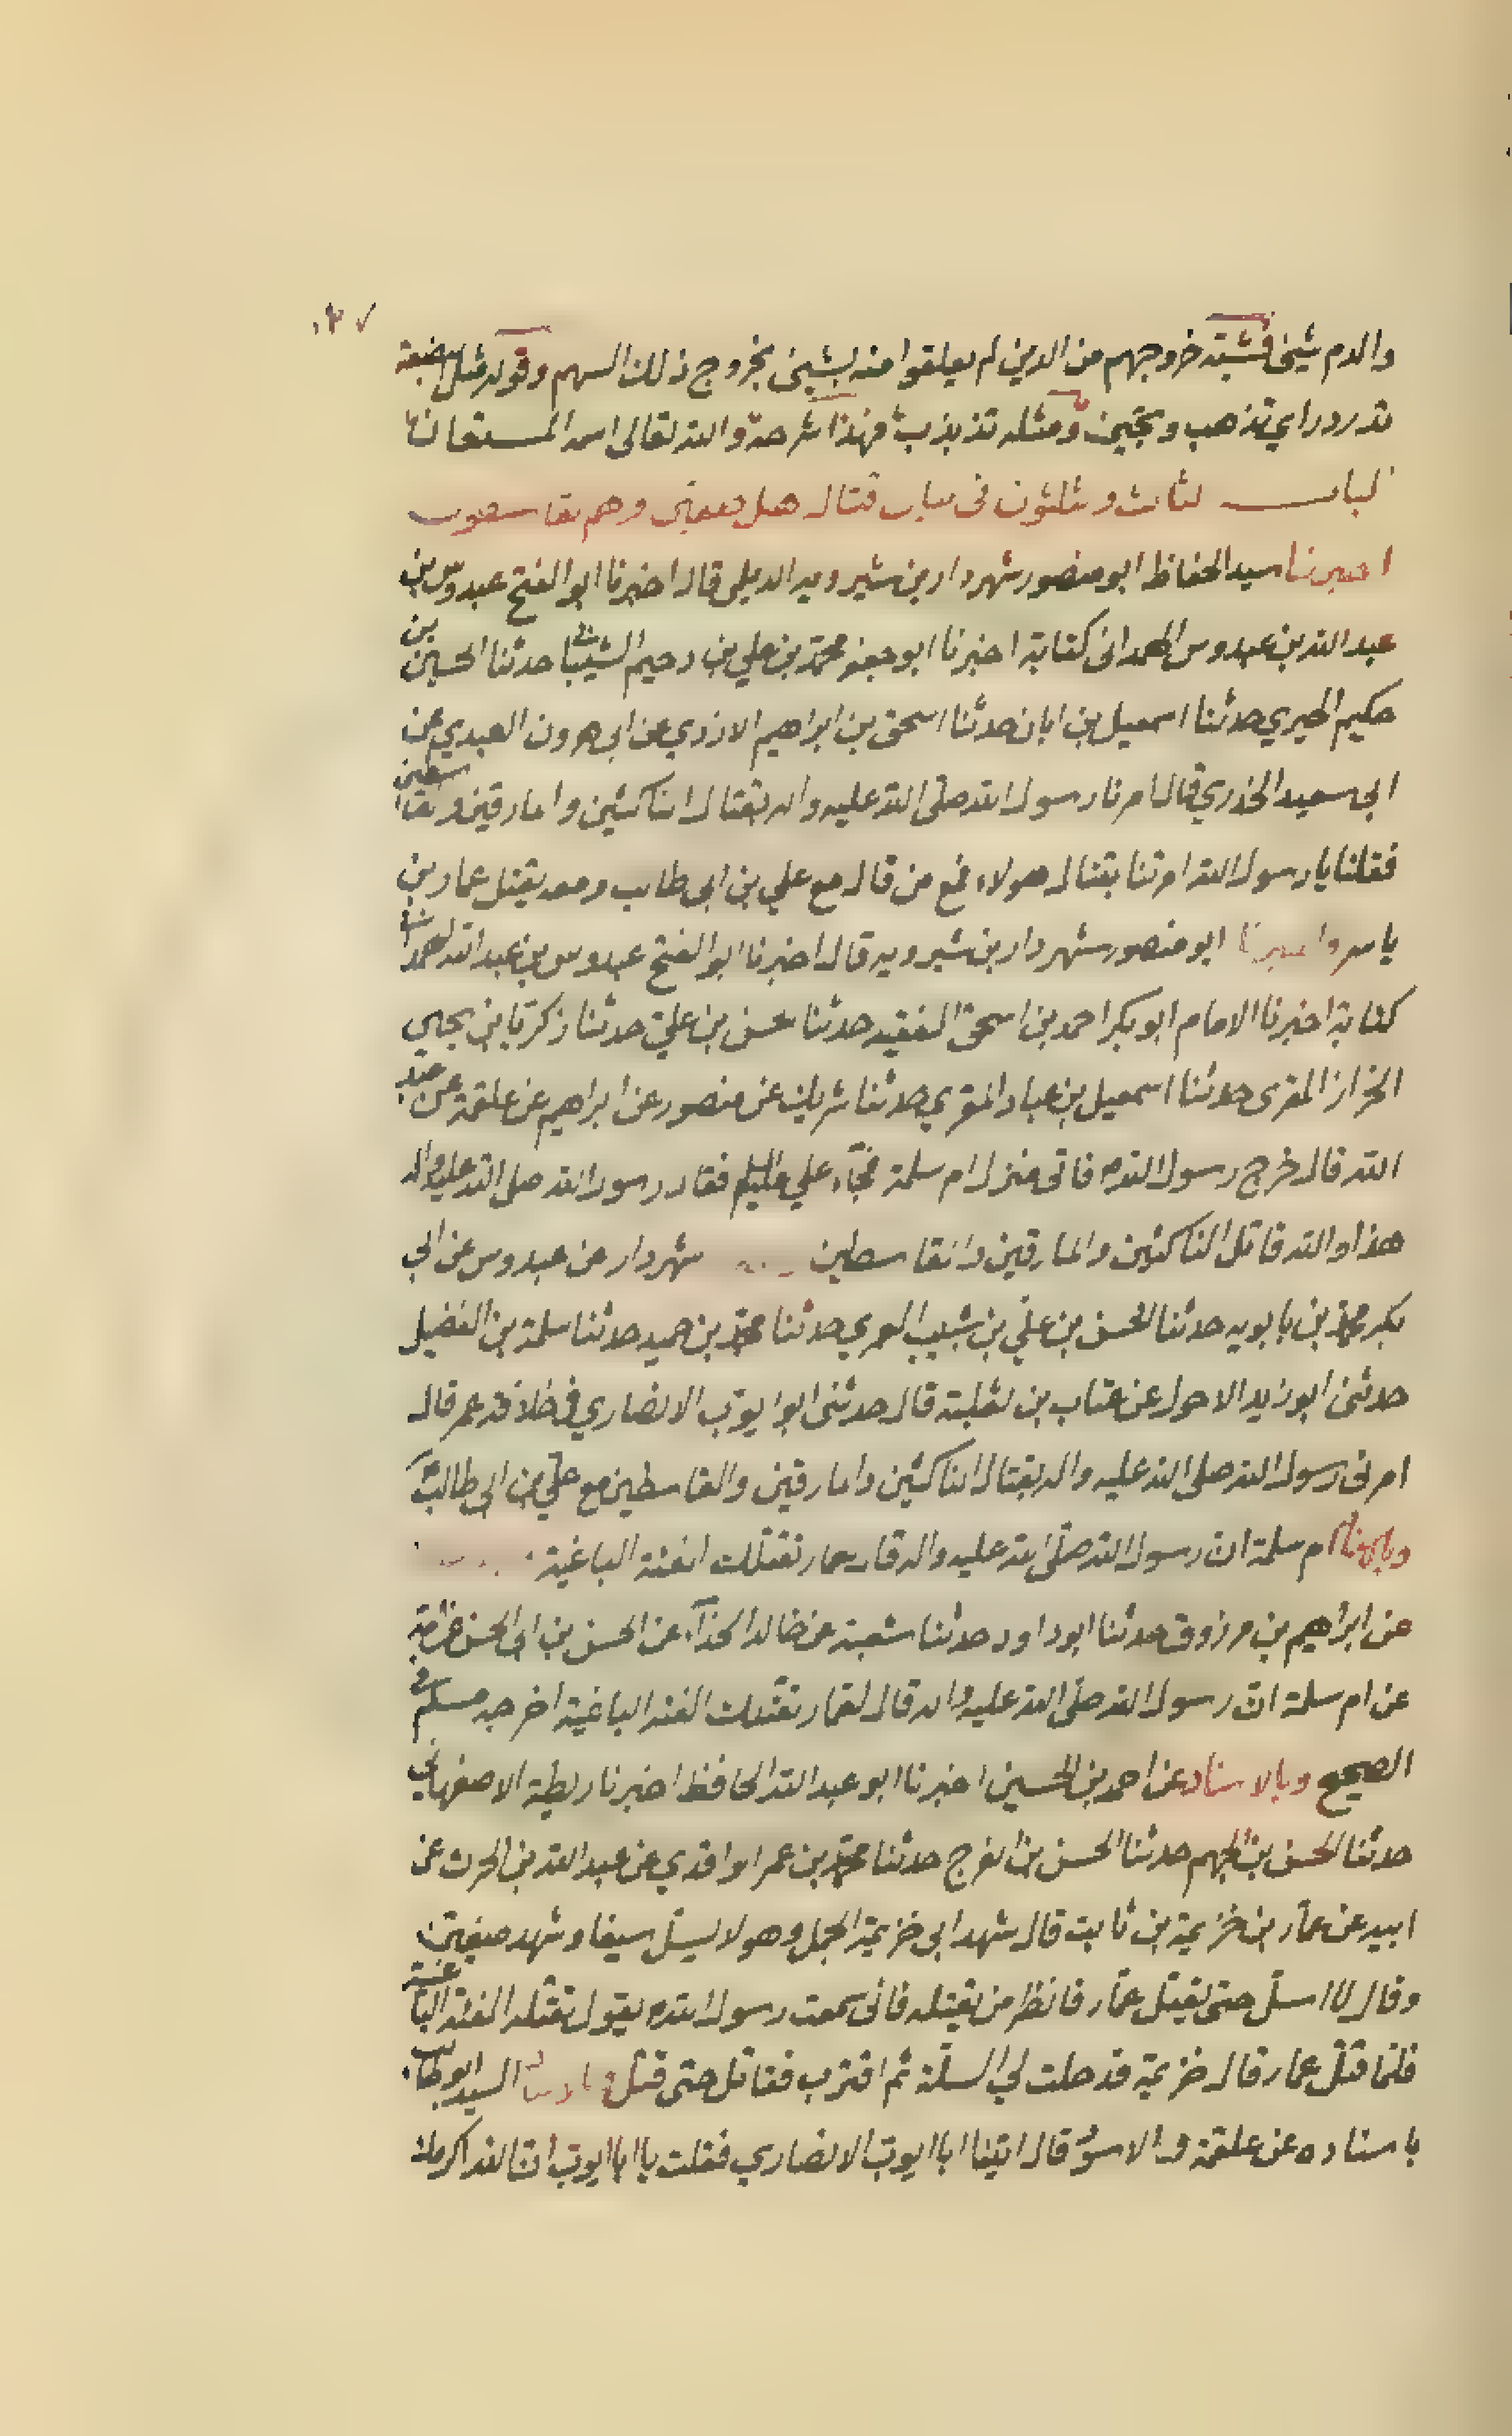 والدم شيئ فشبه خروجهم من الدين لم يعلقوا منه بشيئ بخروج ذلك السهم وقوله مثل البضعة
تدردر اي تذهب وتجيئ ومثله تذبذب فهذا شرحه والله تعالى اسمه المستعان
الباب الثالث وثلثون في بيان قتال اهل صفين وهم القاسطون
اخبرنا سيد الحفاظ ابو منصور شهردار بن شيرويه الديلمي قال اخبرنا ابو الفتح عبدوس بن
عبد الله بن عبدوس الهمداني كتابة اخبرنا ابو جعفر محمد بن علي بن دحيم الشيباني حدثنا الحسين بن
حكيم الحيري حدثنا اسمعيل بن ابان حدثنا اسحق بن ابراهيم الازدي عن ابي هرون العبدي عن
ابي سعيد الخدري قال امرنا رسول الله صلى الله عليه واله بقتال الناكثين والمارقين والقاسطين
فقلنا يا رسول الله امرتنا بقتال هولاء فمع من قال مع علي بن ابي طالب ومعه يقتل عمار بن
ياسر واخبرنا ابو منصور شهردار بن شيرويه قال اخبرنا ابو الفتح عبدوس بن عبد الله الهمداني
كتابة اخبرنا الامام ابو بكر احمد بن اسحق الفقيه حدثنا حسن بن علي حدثنا زكريا بن يحيى
الخزاز المقرى حدثنا اسمعيل بن عباد المقري حدثنا شريك عن منصور عن ابراهيم عن علقمة عن عبد
الله قال خرج رسول الله ص فاتى منزل ام سلمة فجاء علي عليه السلم فقال رسول الله صلى الله عليه واله
هذا والله قاتل الناكثين والمارقين والقاسطين شهردار عن عبدوس عن ابي
بكر محمد بن بابويه حدثنا الحسن بن علي بن شبيب المعمري حدثنا محمد بن حميد حدثنا سلمة بن الفضيل
حدثني ابو زيد الاحول عن عتاب بن ثعلبة قال حدثني ابو ايوب الانصاري في خلافة عمر قال
امرني رسول الله صلى الله عليه واله بقتال الناكثين والمارقين والقاسطين مع علي بن ابي طالب
ام سلمة ان رسول الله صلى الله عليه واله قال لعمار تقتلك الفئة الباغية
عن ابراهيم بن مرزوق حدثنا ابو داود حدثنا شعبة عن خالد الحذاء عن الحسن بن ابي الحسن عن امه
عن ام سلمة ان رسول الله صلى الله عليه واله قال لعمار تقتلك الفئة الباغية اخرجه مسلم في
الصحيح وبالاسناد عن احمد بن الحسين اخبرنا ابو عبد الله الحافظ اخبرنا ربطة الاصفهاني
حدثنا الحسن بن الجهم حدثنا الحسن بن الفرج حدثنا محمد بن عمر الواقدي عن عبد الله بن الحرث عن
ابيه عن عمار بن خزيمة بن ثابت قال شهد ابي خزيمة الجمل وهو لا يسل سيفا وشهد صفين
وقال لا اسل حتى يقتل عمار فانظر من يقتله فاني سمعت رسول الله ص يقول تقتله الفئة الباغية
فلما قتل عمار قال خزيمة قد حلت لي السلة ثم اقترب فقاتل حتى قتل السيد ابو طالب
باسناده عن علقمة والاسود قال اتينا ابا ايوب الانصاري فقلت يا ابا ايوب ان الله اكرمك